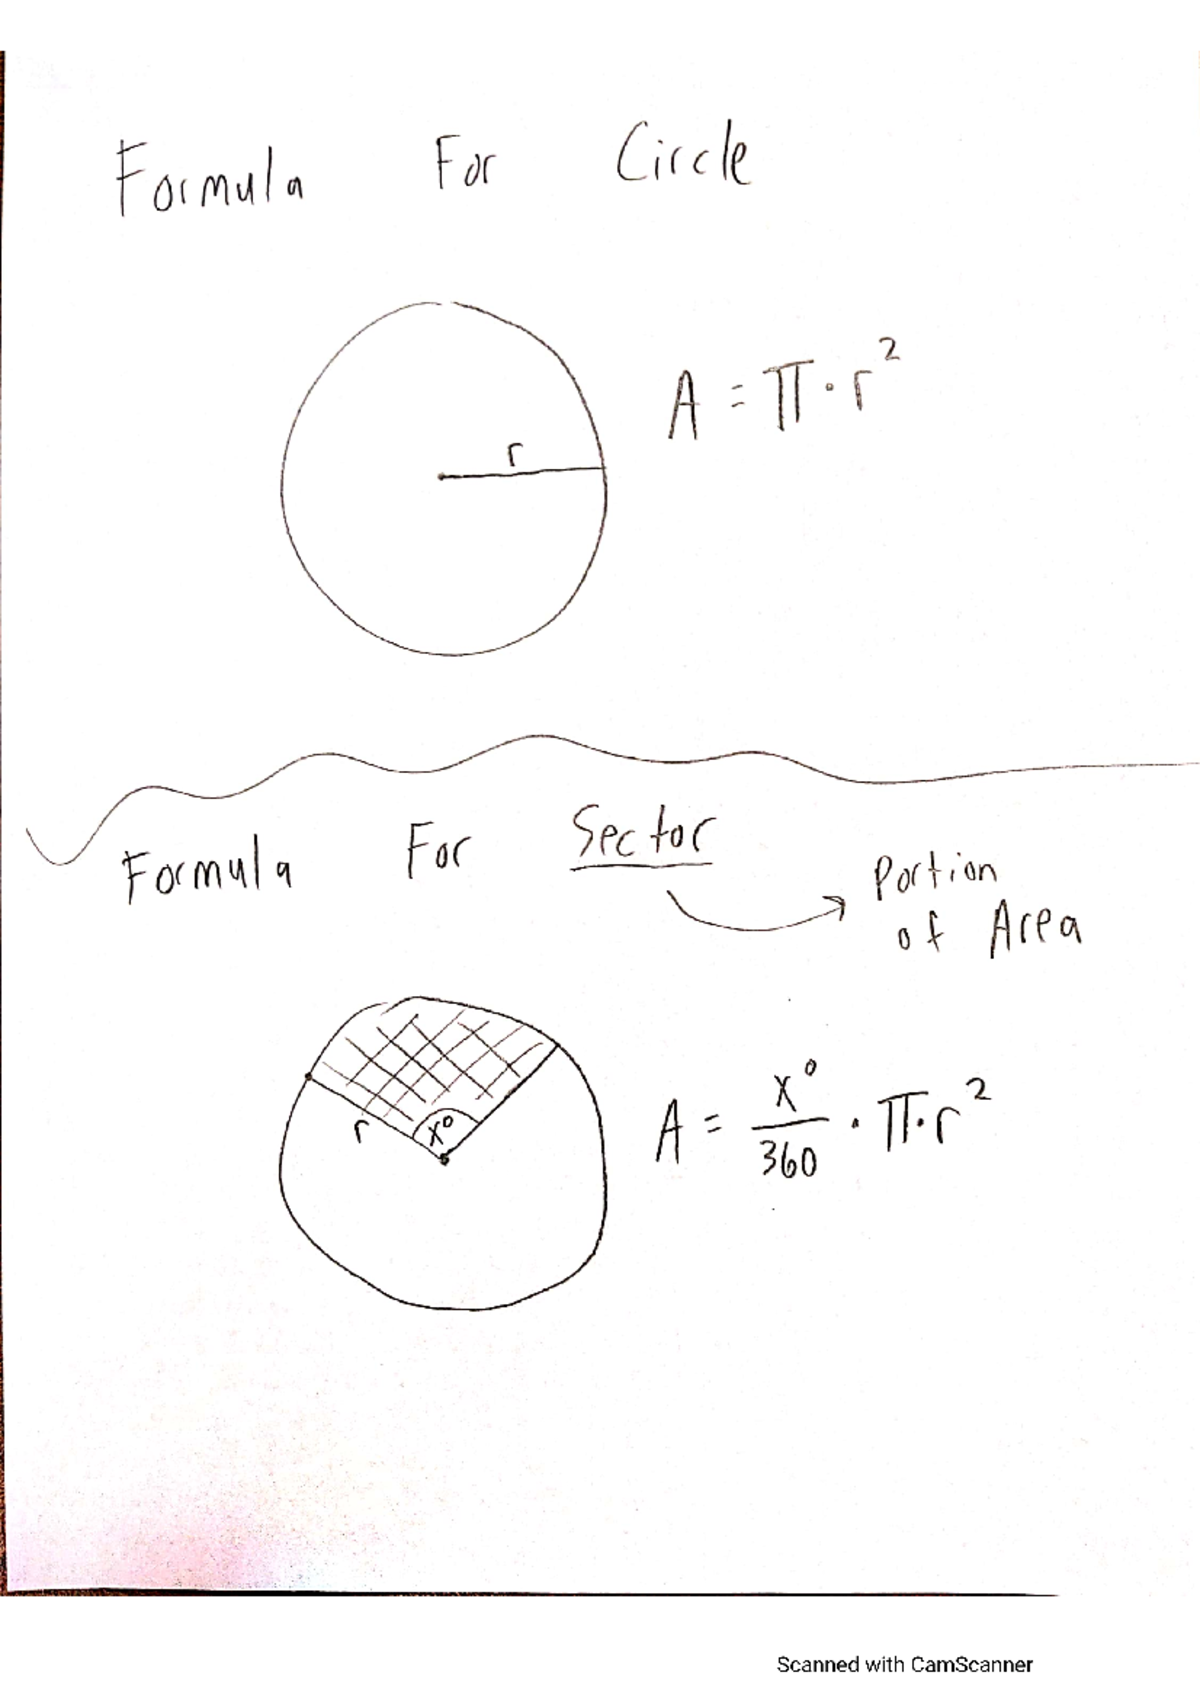 Formula For Circle
r
A = π · r²
Formula For Sector
Portion
of Area
r
x°
A = x°/360 · π · r²
Scanned with CamScanner